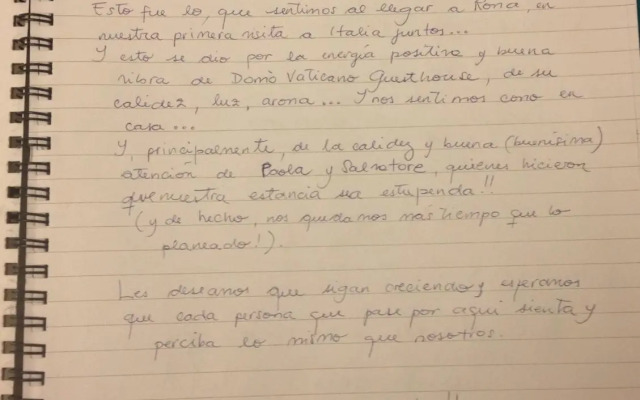 Esto fue lo, que sentimos al llegar a Roma, en
nuestra primera visita a Italia juntos...
Y esto se dio por la energía positiva y buena
vibra de Domò Vaticano Guesthouse, de su
calidez, luz, aroma... Y nos sentimos como en
casa...
Y, principalmente, de la calidez y buena (buenísima)
atención de Paola y Salvatore, quienes hicieron
que nuestra estancia sea estupenda!!
(y de hecho, nos quedamos más tiempo que lo
planeado!).
Les deseamos que sigan creciendo y esperamos
que cada persona que pase por aquí sienta y
perciba lo mismo que nosotros.